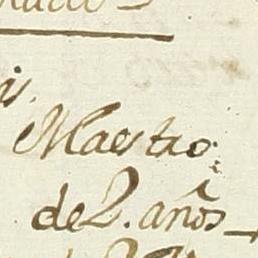 Maestro
de 2. años